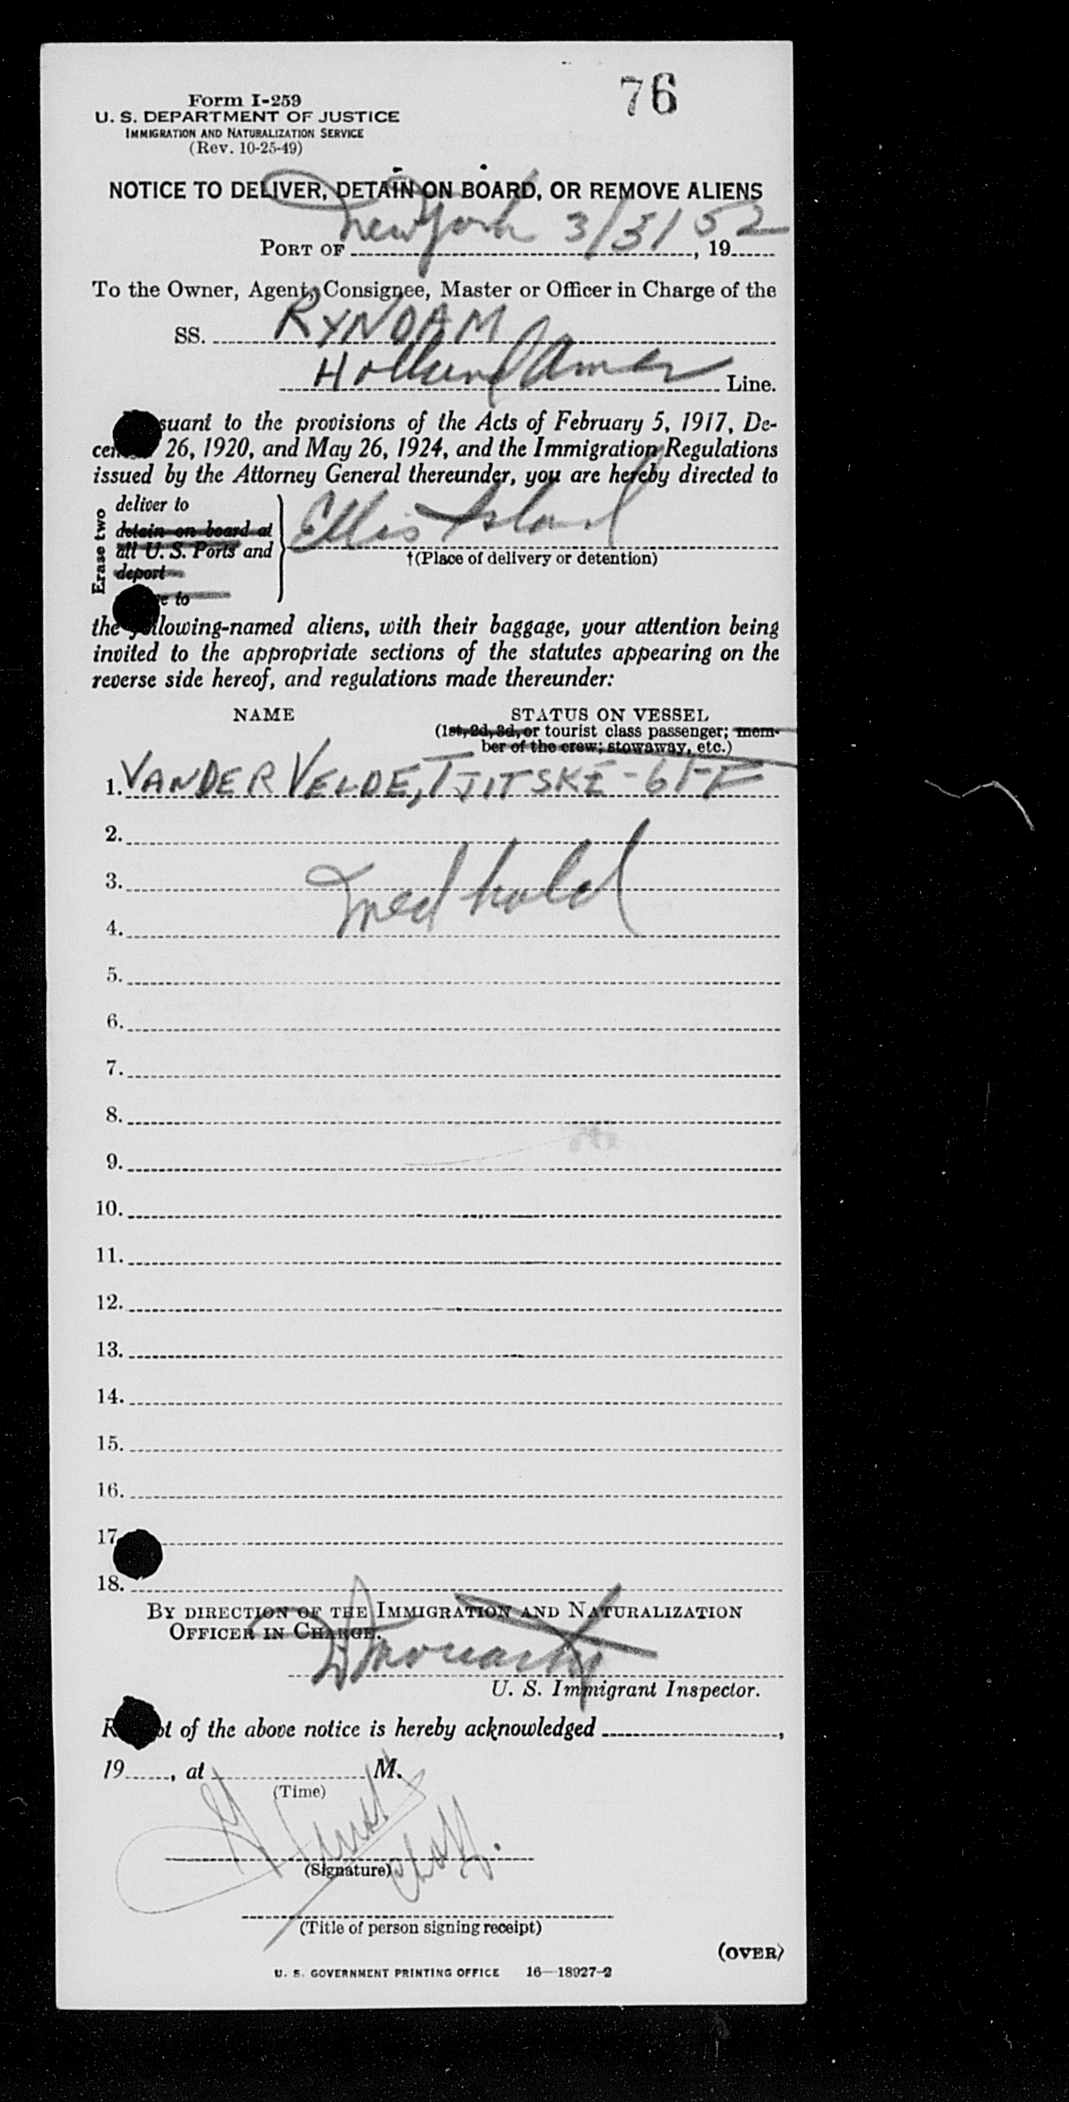 76
Form I-259
U. S. DEPARTMENT OF JUSTICE
IMMIGRATION AND NATURALIZATION SERVICE
(Rev. 10-25-49)
NOTICE TO DELIVER, DETAIN ON BOARD, OR REMOVE ALIENS
PORT OF New York 3/5/52, 19
To the Owner, Agent, Consignee, Master or Officer in Charge of the
SS. RYNDAM
Holland Amer Line.
suant to the provisions of the Acts of February 5, 1917, De-
cem 26, 1920, and May 26, 1924, and the Immigration Regulations
issued by the Attorney General thereunder, you are hereby directed to
Erase two
deliver to
detain on board at
all U. S. Ports and
deport
e to
Ellis Island
†(Place of delivery or detention)
the following-named aliens, with their baggage, your attention being
invited to the appropriate sections of the statutes appearing on the
reverse side hereof, and regulations made thereunder:
NAME STATUS ON VESSEL
(1st, 2d, 3d, or tourist class passenger; mem-
ber of the crew; stowaway, etc.)
1. VANDER VELDE, TJITSKE - 61-F
2.
3. med hold
4.
5.
6.
7.
8.
9.
10.
11.
12.
13.
14.
15.
16.
17
18.
BY DIRECTION OF THE IMMIGRATION AND NATURALIZATION
OFFICER IN CHARGE.
U. S. Immigrant Inspector.
R t of the above notice is hereby acknowledged ,
19 , at M.
(Time)
(Signature)
(Title of person signing receipt)
(OVER)
U. S. GOVERNMENT PRINTING OFFICE 16—18927-2